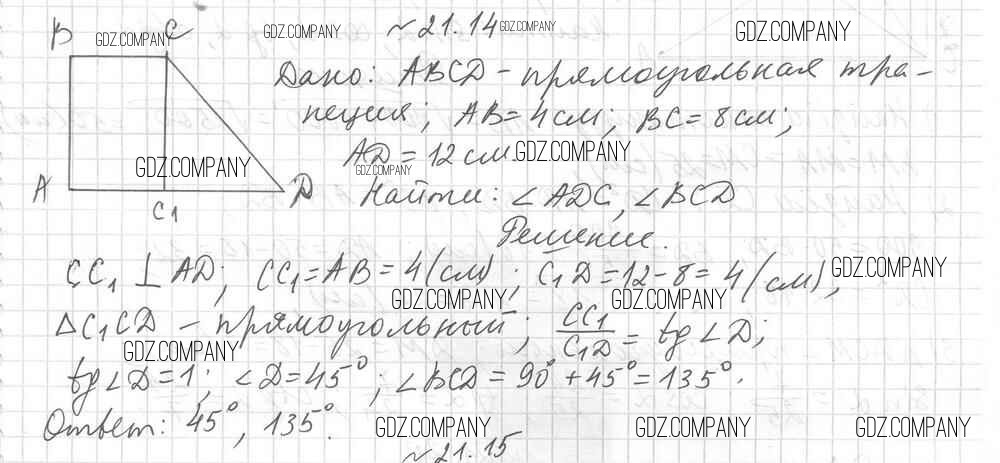 B C №21.14
GDZ.COMPANY GDZ.COMPANY GDZ.COMPANY GDZ.COMPANY
Дано: ABCD – прямоугольная тра-
пеция; AB = 4 см; BC = 8 см;
AD = 12 см. GDZ.COMPANY
GDZ.COMPANY GDZ.COMPANY
A C1 D Найти: ∠ADC, ∠BCD
Решение.
CC1 ⊥ AD; CC1 = AB = 4 (см); C1D = 12 – 8 = 4 (см), GDZ.COMPANY
GDZ.COMPANY GDZ.COMPANY
△C1CD – прямоугольный; CC1/C1D = tg∠D;
GDZ.COMPANY
tg∠D = 1; ∠D = 45°; ∠BCD = 90° + 45° = 135°.
Ответ: 45°, 135°. GDZ.COMPANY GDZ.COMPANY GDZ.COMPANY
№21.15